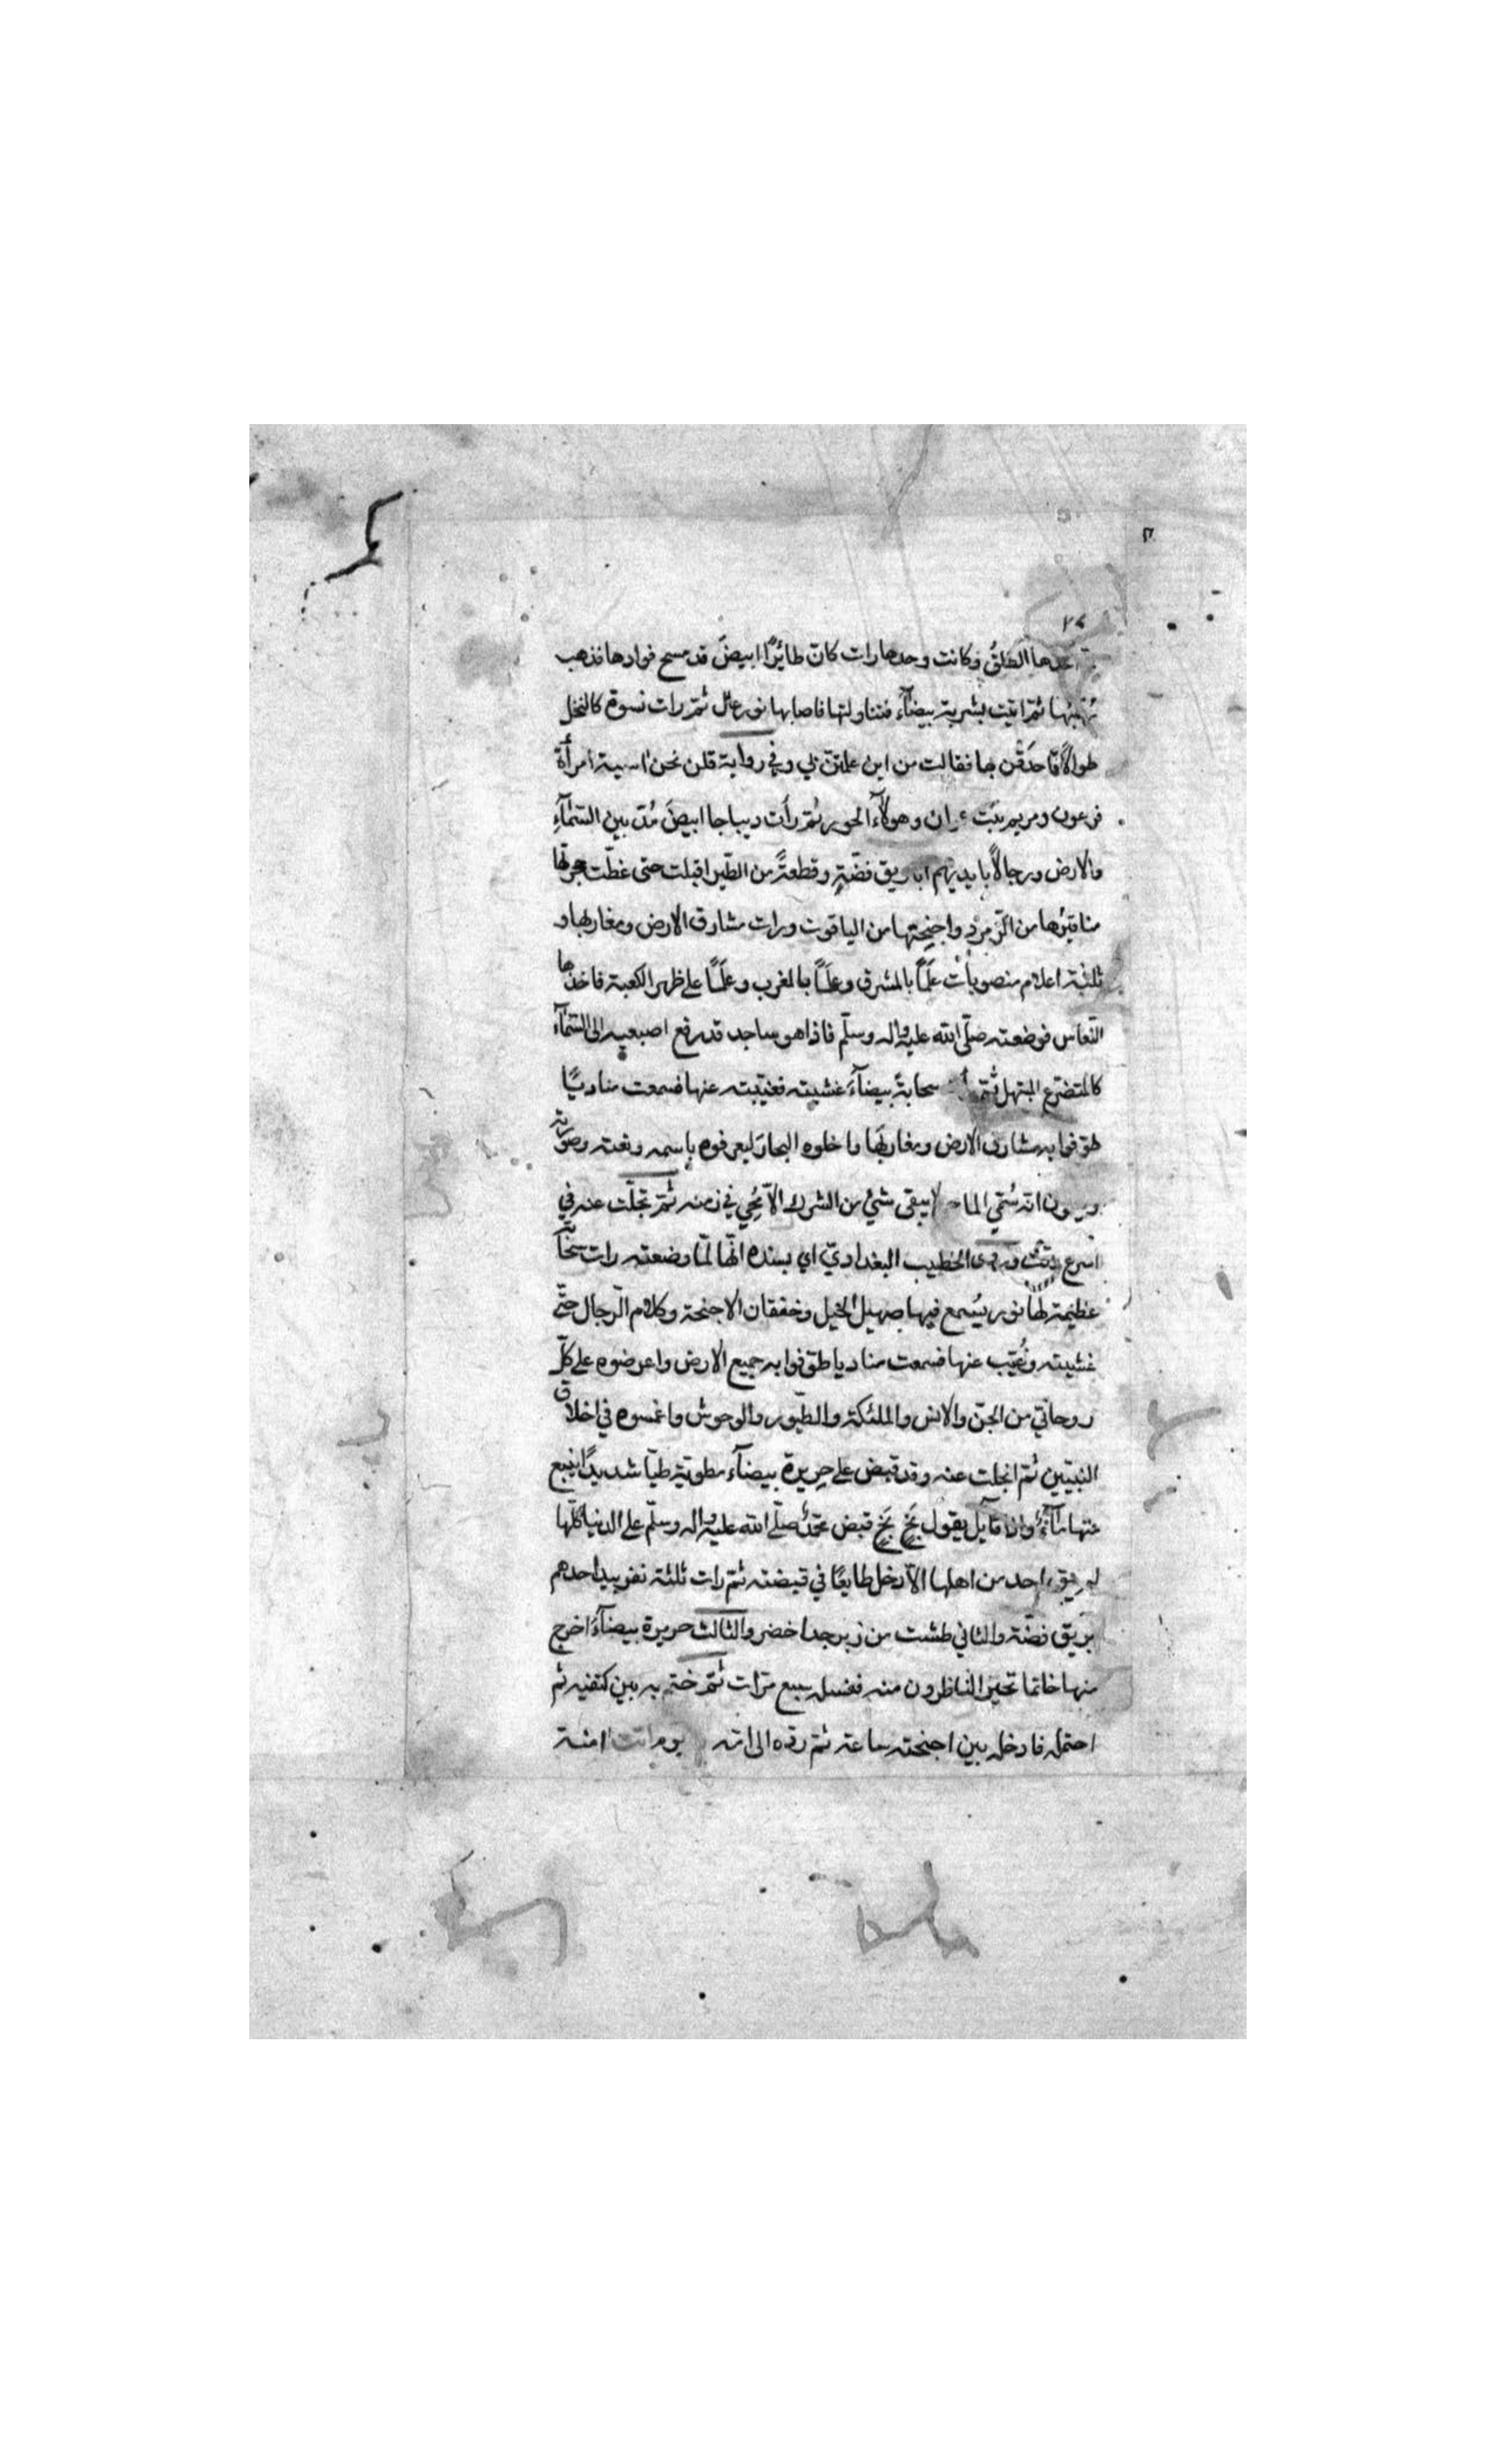 اخذها الطلقُ وكانت وحدها رات كانّ طائرًا ابيضَ قد مسح فوادها فذهب
ثمّ اتيت بشربة بيضآء فتناولتها فاصابها نور عال ثمّ رات نسوة كالنخل
طوالاً قد احدَقْن بها فقالت من اين علمتنّ بي وفي رواية قلن نحن اسية امرأة
فرعون ومريم بنت عمران وهولآء الحور ثم رأت ديباجا ابيضَ مُدّ بين السّمآءِ
والارض ورجالاً بايديهم اباريق فضّةٍ وقطعةً من الطّير اقبلت حتى غطّت حجرتها
مناقيرُها من الزّمرّدِ واجنِحتها من الياقوت ورات مشارق الارض ومغاربها و
ثلثة اعلام منصوباتٍ علَمًا بالمشرق وعلَمًا بالمغرب وعلَمًا على ظهر الكعبة فاخذها
النّعاس فوضعته صلّى الله عليه واله وسلّم فاذا هو ساجد قد رفع اصبعيه الى السّمآء
كالمتضرّع المبتهل ثمّ سحابةً بيضآءَ غشيته فغيّبته عنها فسمعت مناديًا
طوّفوا به مشارق الارض ومغاربَها وادخلوه البحارَ ليعرفوه باسمه ونعته وصورته
انّه سُمّي الماحي لا يبقى شيٌ من الشرك الّا مُحِي في زمنه ثمّ تجلّت عنه في
اسرع وقت وروى الخطيب البغداديّ اي بسنده انّها لمّا وضعته رات سحابة
عظيمة لها نور يسُمع فيها صهيل الخيل وخفقان الاجنحة وكلام الرّجال حتّى
غشيته وغُيّب عنها فسمعت مناديا طوّفوا به جميع الارض واعرضوه على كلّ
روحانّي من الجنّ والانس والملئكة والطّيور والوحوش واغمسوه في اخلاق
النّبيّين ثمّ انجلت عنه وقد قبض على حريرة بيضآء مطويّة طيّا شديدًا ينبع
منها مآءٌ واذا قآيل يقول بَخٍ بَخٍ قبض محمّدٌ صلّى الله عليه واله وسلّم على الدنيا كلّها
لم يبق احد من اهلها الّا دخل طايعًا في قبضته ثمّ رات ثلثة نفر بيد احدهم
بريق فضّة والثاني طشت من زبرجد اخضر والثالث حريرة بيضآءُ اخرج
منها خاتما تحير الناظرون منه فغسل سبع مرّات ثمّ ختم به بين كتفيه ثم
احتمله فادخله بين اجنحته ساعة ثم ردّه الى امّه امنة